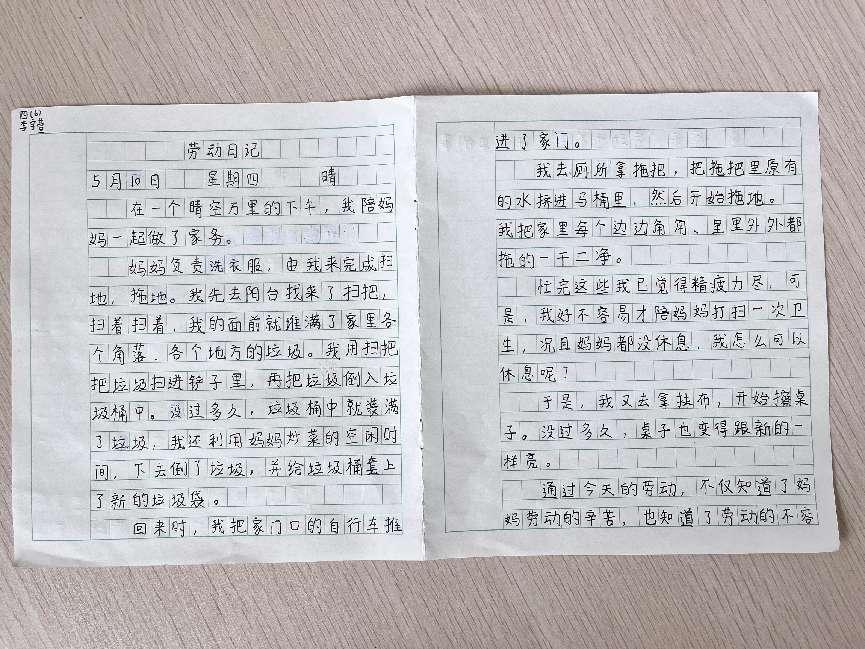 四(6)
李宇萱
劳动日记
5月10日 星期四 晴
在一个晴空万里的下午，我陪妈
妈一起做了家务。
妈妈负责洗衣服，由我来完成扫
地，拖地。我先去阳台找来了扫把，
扫着扫着，我的面前就堆满了家里各
个角落、各个地方的垃圾。我用扫把
把垃圾扫进铲子里，再把垃圾倒入垃
圾桶中。没过多久，垃圾桶中就装满
了垃圾，我还利用妈妈炒菜的空闲时
间，下去倒了垃圾，并给垃圾桶套上
了新的垃圾袋。
回来时，我把家门口的自行车推
进了家门。
我去厕所拿拖把，把拖把里原有
的水挤进马桶里，然后开始拖地。
我把家里每个边边角角、里里外外都
拖的一干二净。
忙完这些我已觉得精疲力尽，可
是，我好不容易才陪妈妈打扫一次卫
生，况且妈妈都没休息，我怎么可以
休息呢？
于是，我又去拿抹布，开始擦桌
子。没过多久，桌子也变得跟新的一
样亮。
通过今天的劳动，不仅知道了妈
妈劳动的辛苦，也知道了劳动的不容